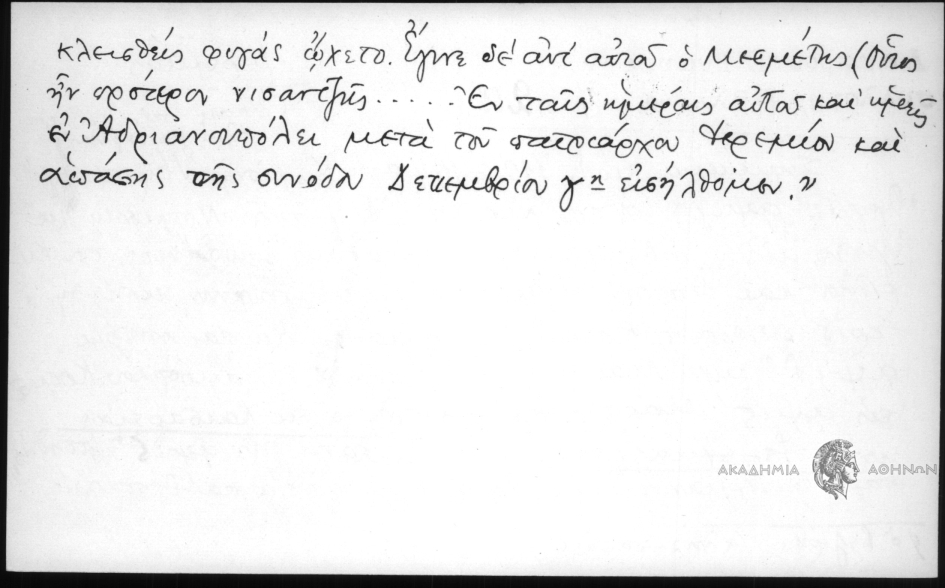 κλεισθείς φυγάς ᾤχετο. Ἔγινε δέ ἀντ' αὐτοῦ ὁ Μεεμέτης (Οὗτος
ἦν πρότερον νισαντζῆς ..... Ἐν ταῖς ἡμέραις αὐταῖς καί ἡμεῖς
ἐν Ἀδριανουπόλει μετὰ τοῦ πατριάρχου Ἱερεμίου καὶ
ἁπάσης τῆς συνόδου Δεκεμβρίου γῃ εἰσήλθομεν.»
ΑΚΑΔΗΜΙΑ ΑΘΗΝΩΝ